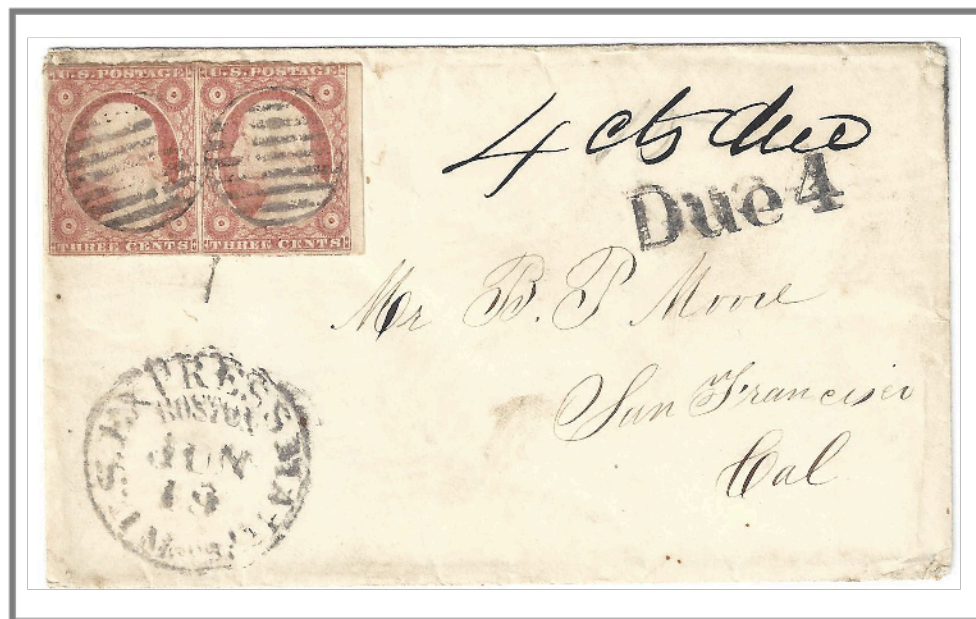 U.S. POSTAGE U.S. POSTAGE
THREE CENTS THREE CENTS
4 cts due
Due 4
Mr B. P Moore
San Francisco
Cal
U.S. EXPRESS MAIL
BOSTON
JUN
13
Mass.